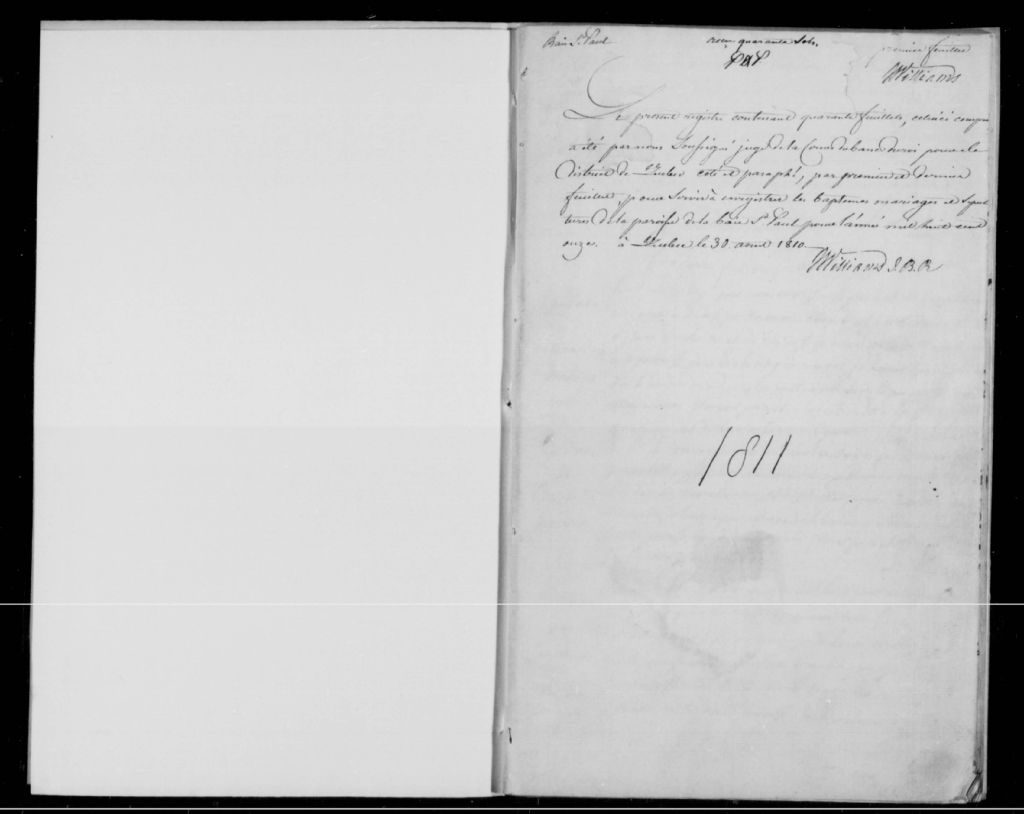 Baie St Paul
recu quarante sols.
P&P
premier feuillet
JWilliams
Le present registre contenant quarante feuillets, celui ci compris
a été par nous Soussigné juge de la Cour du banc du roi pour le
District de Quebec coté et paraphé, par premier et dernier
feuillet, pour Servir à enregistrer les baptemes mariages et Sepul
tures de la paroisse de la baie St Paul pour l'année mil huit cent
onze. à Quebec le 30 1810
JWilliams J.B.R
1811